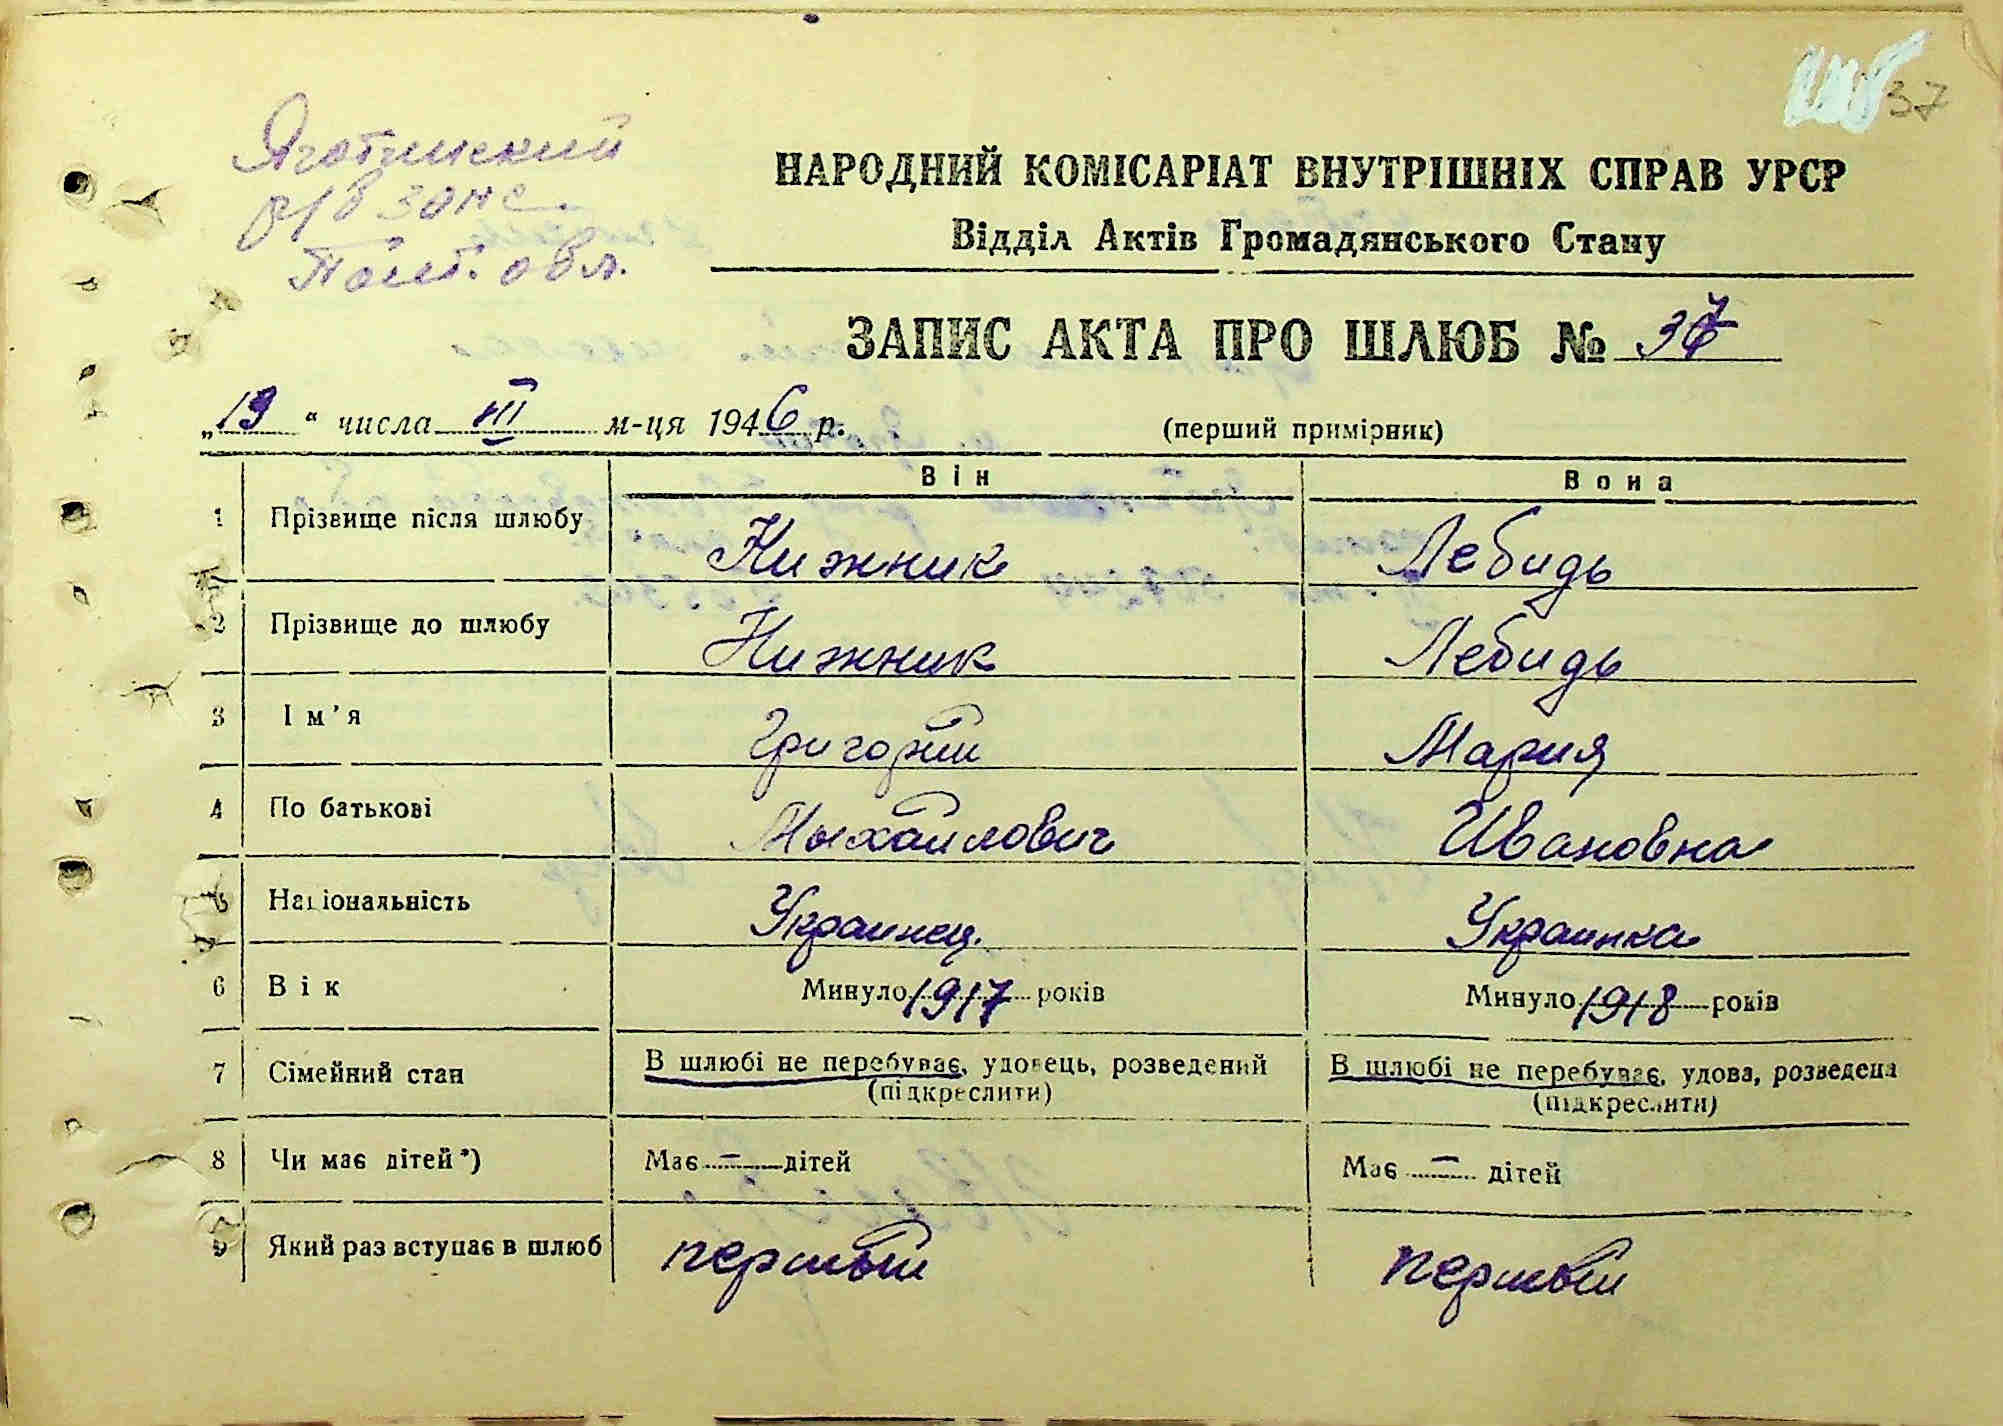 37
Яготинский
р/в загс
Полт. обл.
НАРОДНИЙ КОМІСАРІАТ ВНУТРІШНІХ СПРАВ УРСР
Відділ Актів Громадянського Стану
ЗАПИС АКТА ПРО ШЛЮБ № 37
„19“ числа III м-ця 1946 р.
(перший примірник)
Він Вона
1 Прізвище після шлюбу Нижник Лебидь
2 Прізвище до шлюбу Нижник Лебидь
3 Ім'я Григорий Мария
4 По батькові Мыхайлович Ивановна
5 Національність Украинец. Украинка
6 Вік Минуло 1917 років Минуло 1918 років
7 Сімейний стан В шлюбі не перебуває, удовець, розведений В шлюбі не перебуває, удова, розведена
(підкреслити) (підкреслити)
8 Чи має дітей*) Має — дітей Має — дітей
9 Який раз вступає в шлюб первый первый